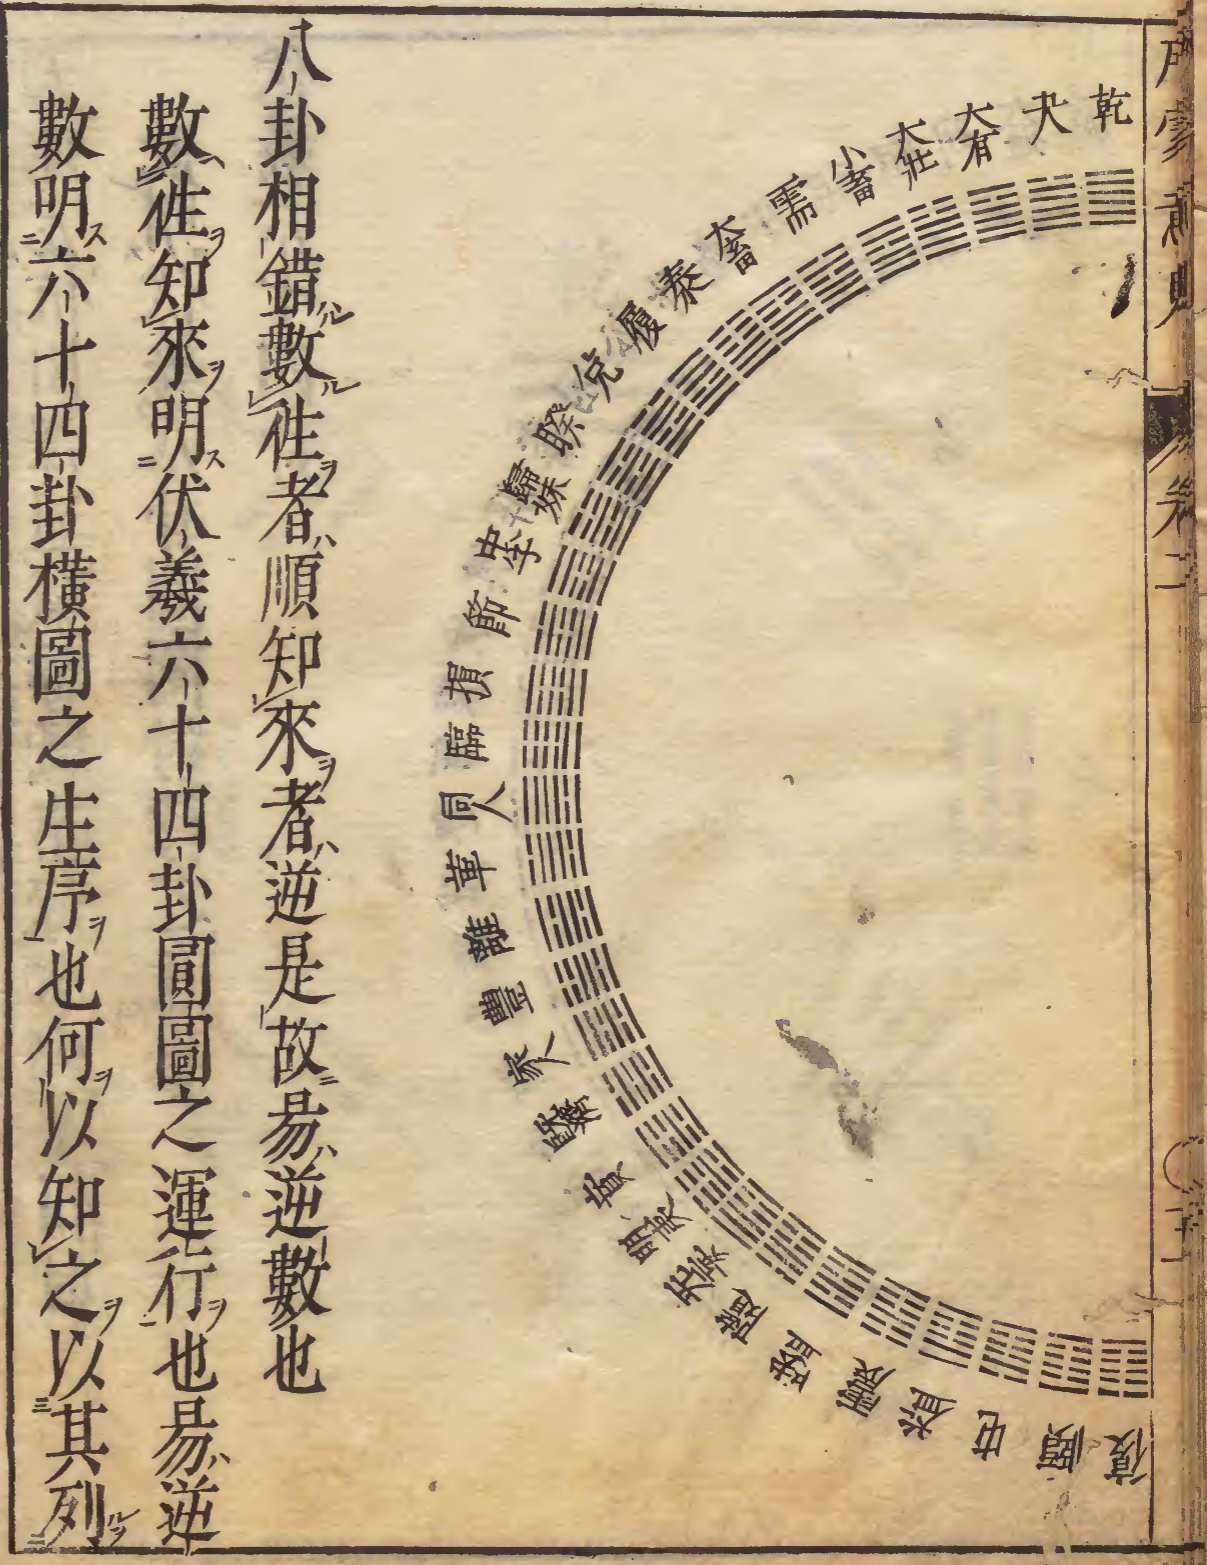 乾
夬
大有
大壯
小畜
需
大畜
泰
履
兌
睽
歸妹
中孚
節
損
臨
同人
革
離
豐
家人
既濟
賁
明夷
无妄
隨
噬嗑
震
益
屯
頤
復
八卦相錯數徃者順知來者逆是故昜逆數也
數徃知來明伏羲六十四卦圓圖之運行也昜逆
數明六十四卦橫圖之生序也何以知之以其列